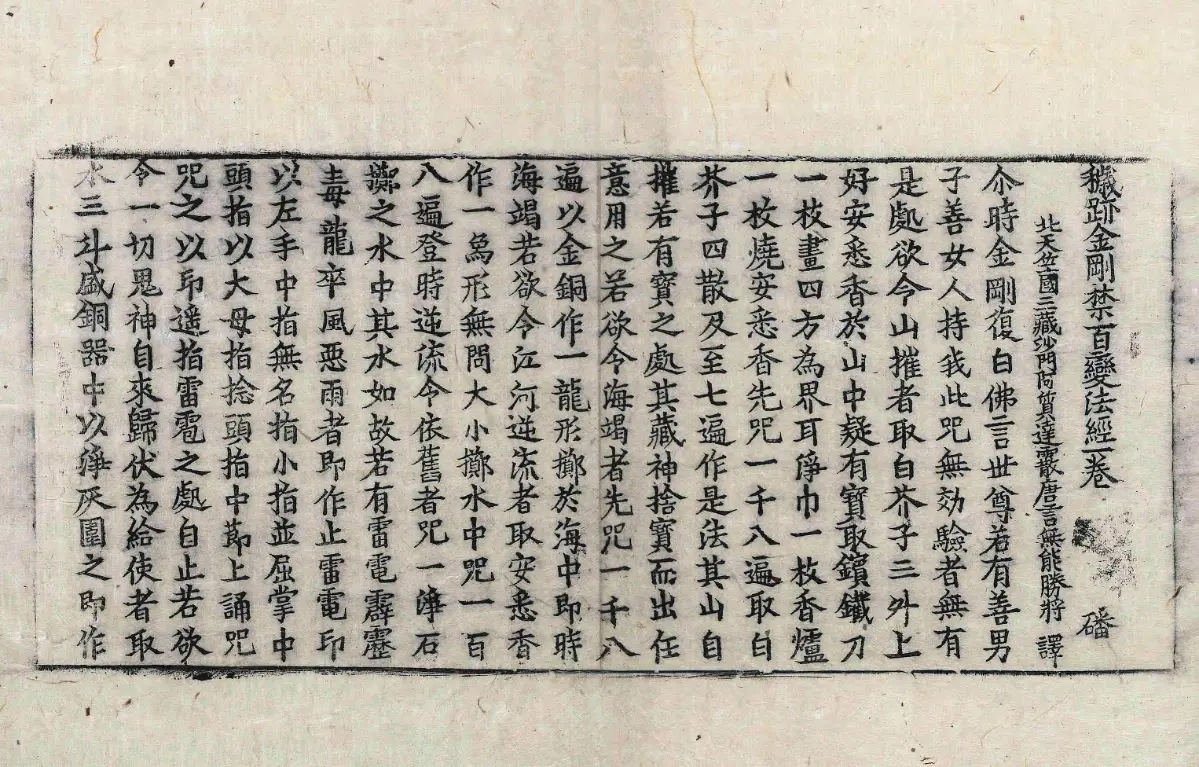 穢跡金剛禁百變法經一卷 磻
北天竺國三藏沙門阿質達霰唐言無能勝將 譯
尒時金剛復白佛言世尊若有善男
子善女人持我此咒無効驗者無有
是處欲令山摧者取白芥子三升上
好安悉香於山中疑有寶取鑌鐵刀
一枚畫四方為界耳淨巾一枚香爐
一枚燒安悉香先咒一千八遍取白
芥子四散及至七遍作是法其山自
摧若有寶之處其藏神捨寶而出任
意用之若欲令海竭者先咒一千八
遍以金銅作一龍形擲於海中即時
海竭若欲令江河逆流者取安悉香
作一為形無問大小擲水中咒一百
八遍登時逆流令依舊者咒一淨石
擲之水中其水如故若有雷電霹靂
毒龍卒風惡雨者即作止雷電印
以左手中指無名指小指並屈掌中
頭指以大母指捻頭指中節上誦咒
咒之以印遥指雷雹之處自止若欲
令一切鬼神自來歸伏為給使者取
水三斗盛銅器中以淨灰圍之即作